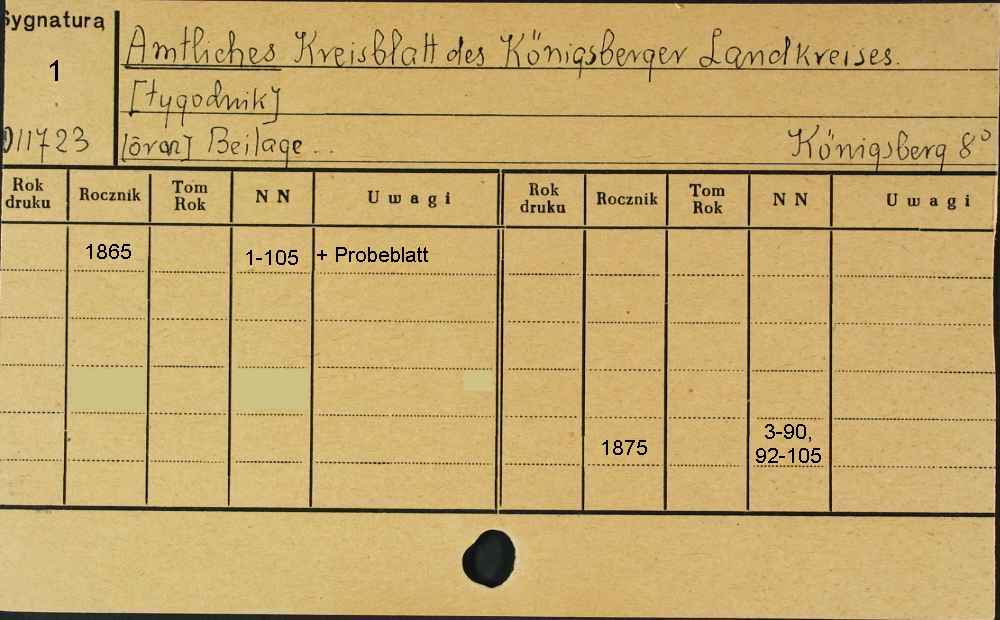 Sygnatura
1
011723
Amtliches Kreisblatt des Königsberger Landkreises.
[tygodnik]
[oraz] Beilage...
Königsberg 8°
Rok druku Rocznik Tom Rok N N Uwagi Rok druku Rocznik Tom Rok N N Uwagi
1865 1-105 + Probeblatt
1875 3-90,
92-105